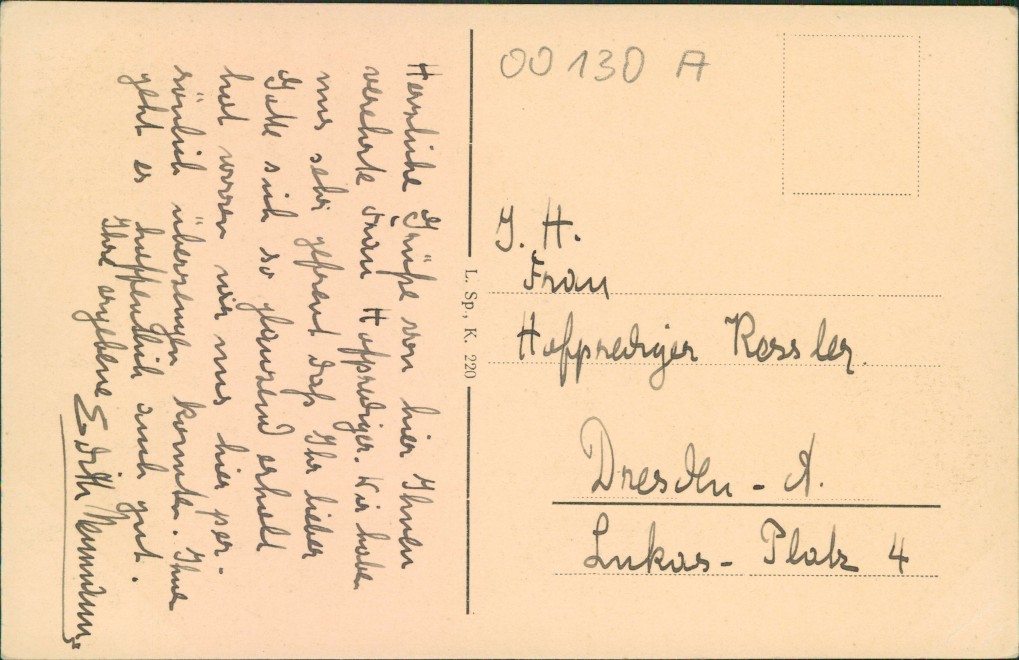 Herzliche Grüße von hier Ihnen
verehrte Frau Hofprediger. Wir haben
uns sehr gefreut daß Ihr lieber
Gatte sich so glänzend erholt
hat wovon wir uns hier per-
sönlich überzeugen konnten. Ihnen
geht es hoffentlich auch gut.
Ihre ergebene Edith
L. Sp., K. 220
00130 A
I. H.
Frau
Hofprediger Kessler
Dresden - A.
Lukas - Platz 4